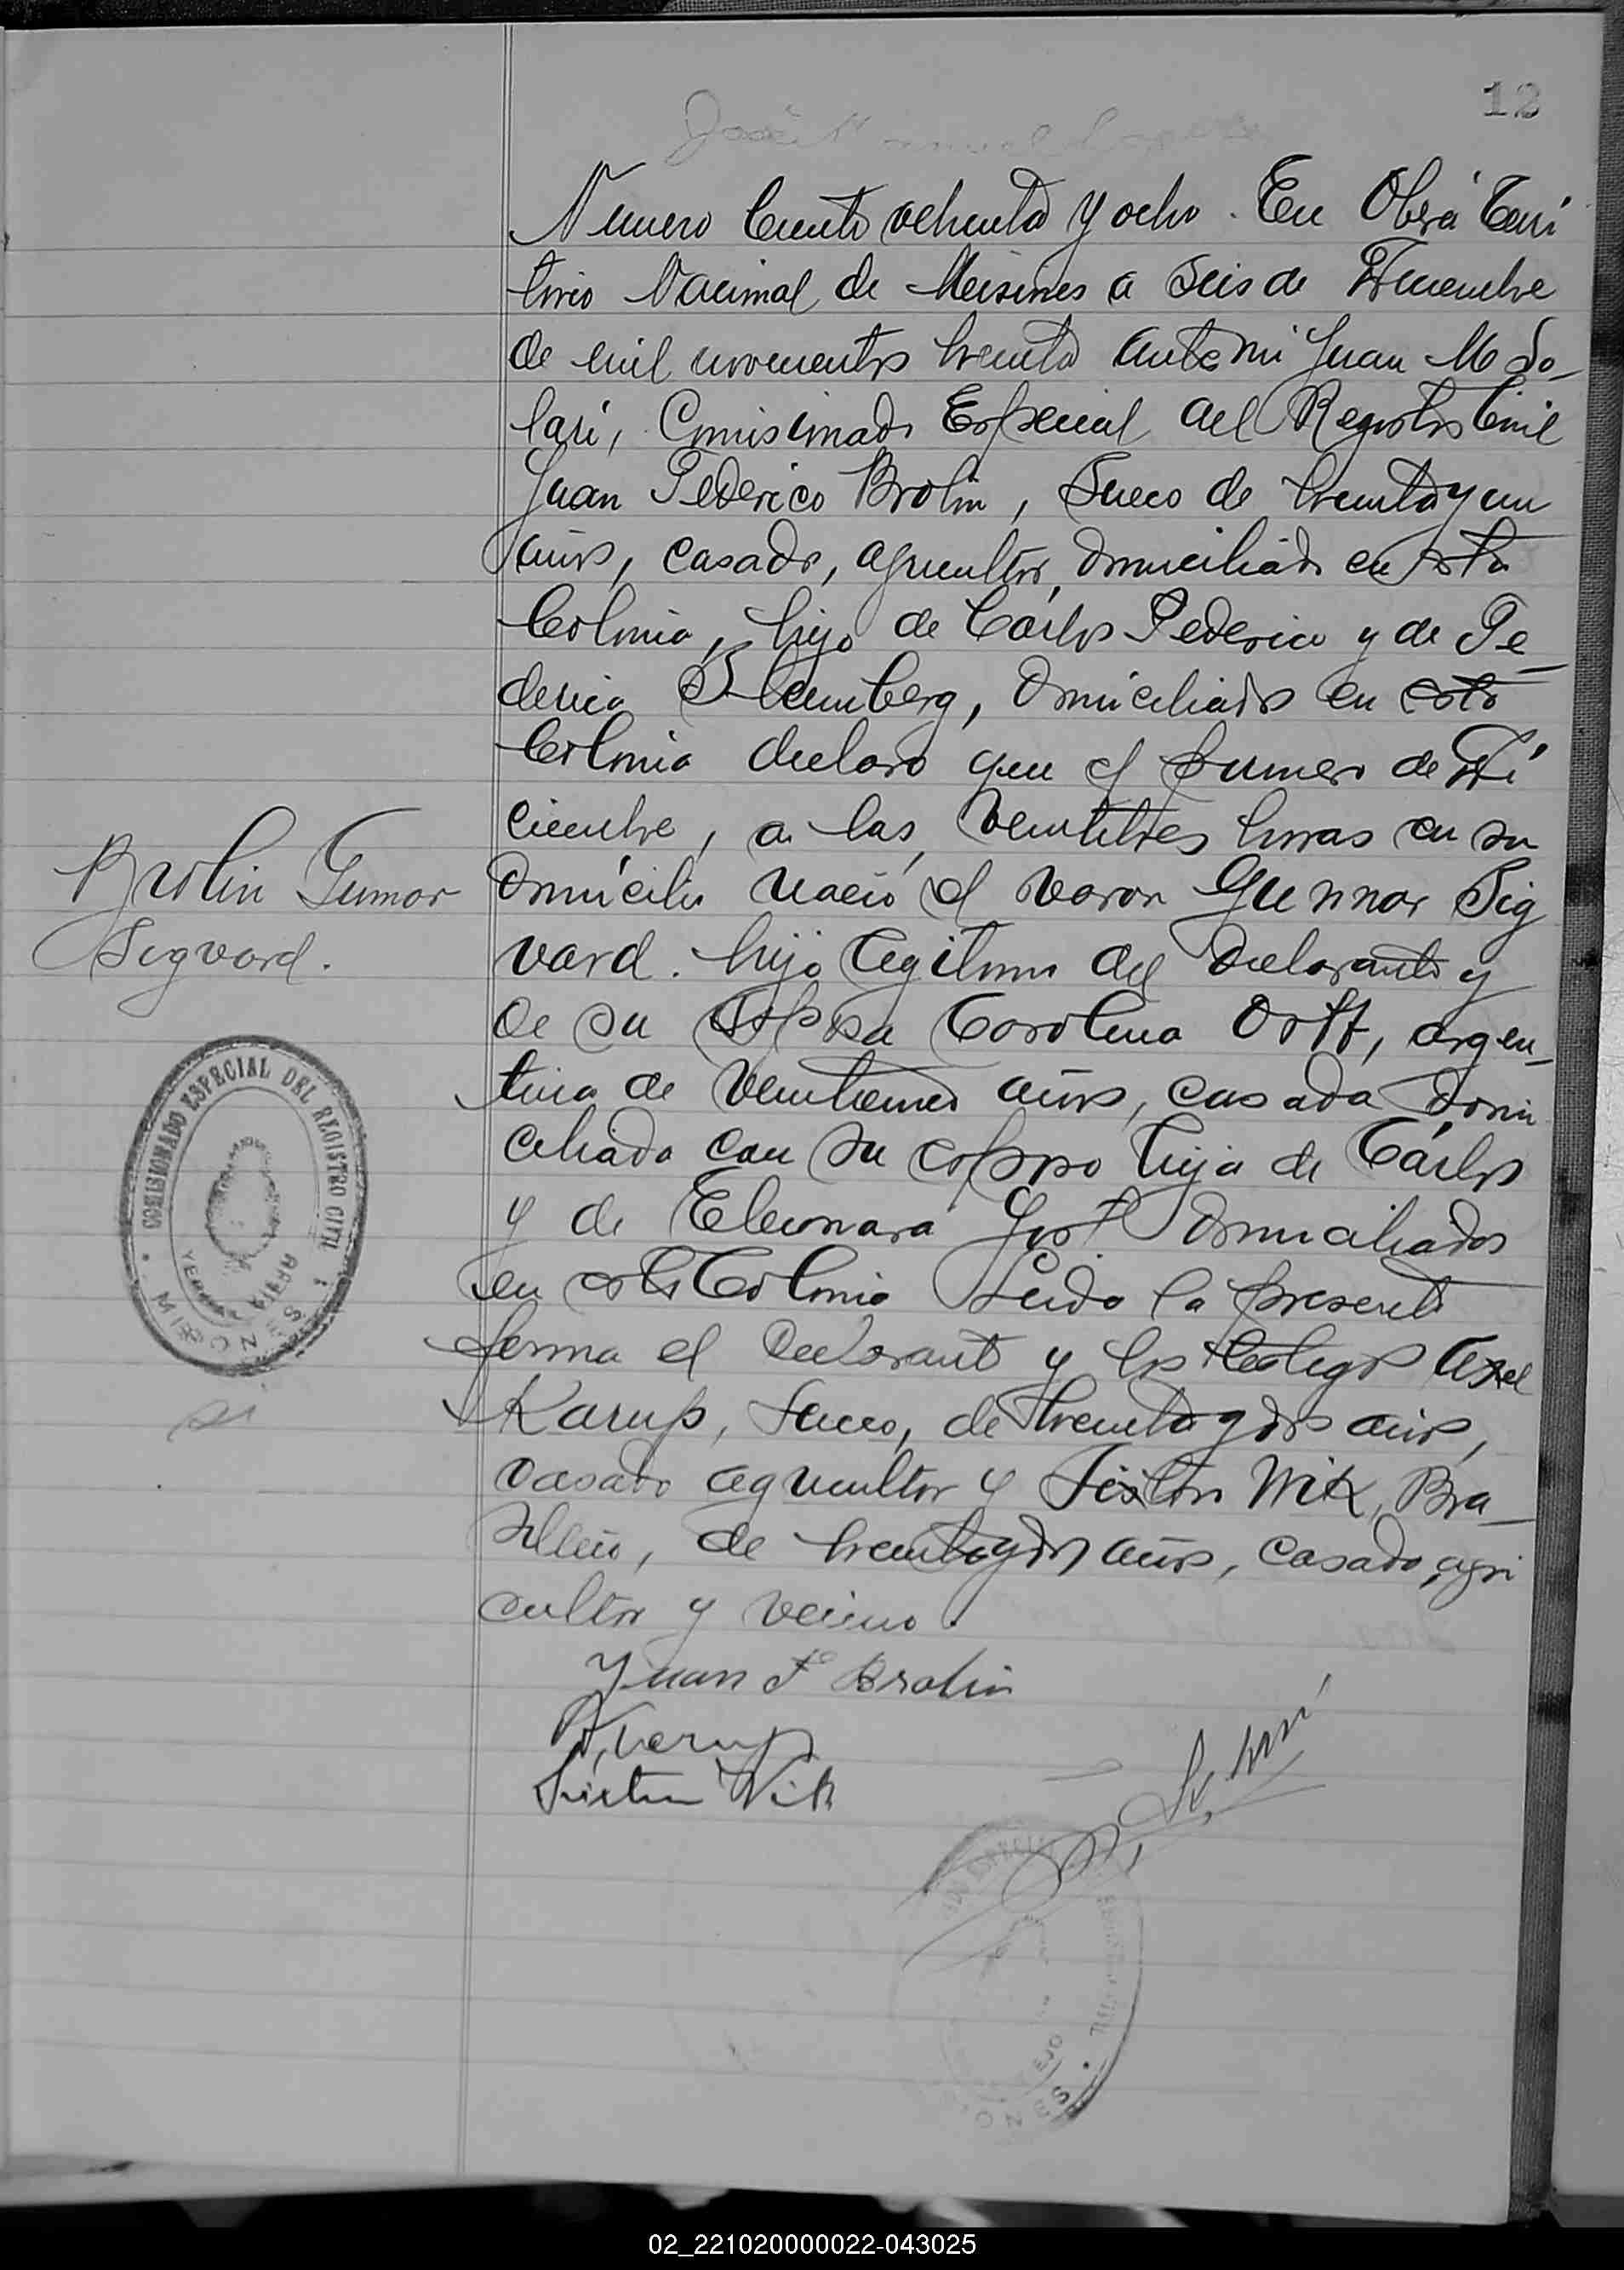 12
Numero Ciento ochenta y ocho. En Oberá Terri
torio Nacional de Misiones a seis de Diciembre
de mil novecientos treinta ante mi Juan M So-
lari, Comisionado Especial del Registro Civil
Juan Federico Brolin, Sueco de treinta y un
años, casado, agricultor, domiciliado en esta
Colonia, hijo de Cárlos Federico y de Fe-
derica Blumberg, domiciliados en esta
Colonia declaro que el primero de Di
ciembre, a las veintitres horas en su
domicilio nació el varon Gunnar Sig
vard. hijo legitimo del declarante y
de su esposa Carolina Ortt, argen-
tina de veintinueve años, casada domi
ciliada con su esposo hija de Cárlos
y de Eleonara Just domiciliados
en esta Colonia Leida la presente
firma el declarante y los testigos Axel
Karup, Sueco, de treinta y dos años,
casado agricultor y Sixten Wik, Bra-
sileño, de treinta y dos años, casado, agri
cultor y vecino.
Brolin Gunnar
Sigvard.
COMISIONADO ESPECIAL DEL REGISTRO CIVIL
MISIONES
Juan F Brolin
A. Karup
Sixten Wik
02_221020000022-043025